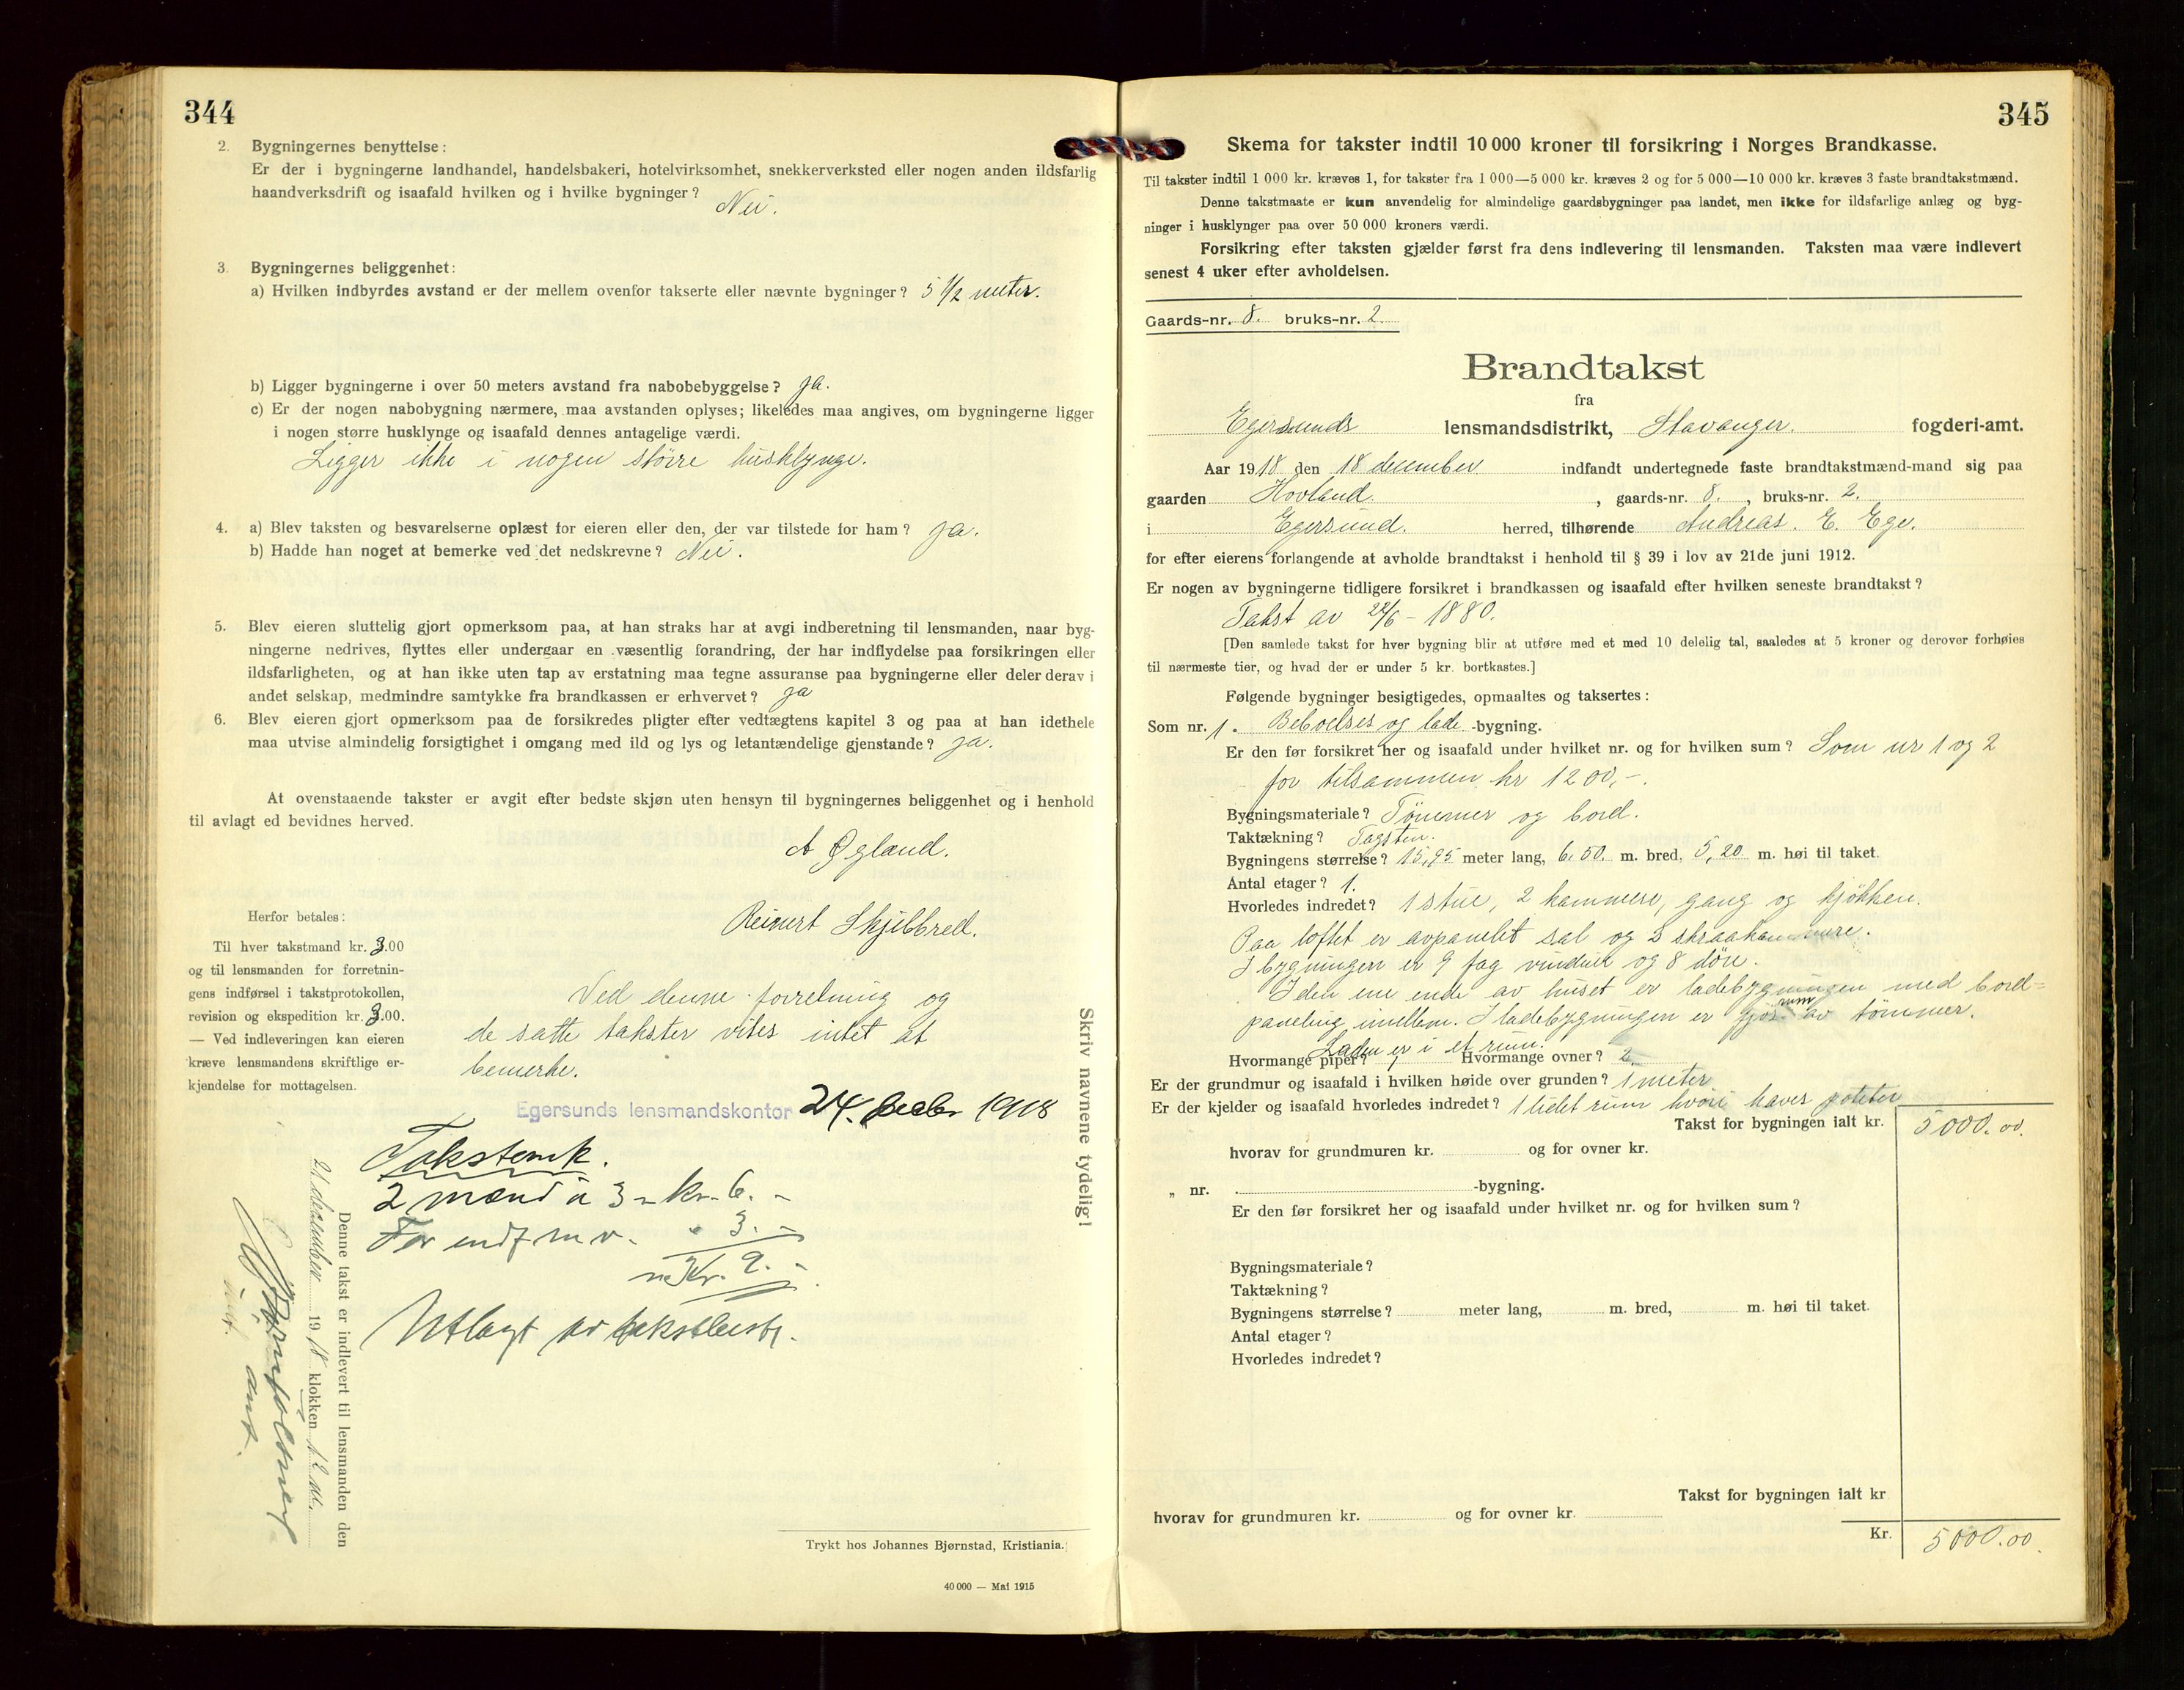 344
2. Bygningernes benyttelse:
Er der i bygningerne landhandel, handelsbakeri, hotelvirksomhet, snekkerverksted eller nogen anden ildsfarlig
haandverksdrift og isaafald hvilken og i hvilke bygninger? Nei.
3. Bygningernes beliggenhet:
a) Hvilken indbyrdes avstand er der mellem ovenfor takserte eller nævnte bygninger? 5 1/2 meter.
b) Ligger bygningerne i over 50 meters avstand fra nabobebyggelse? ja.
c) Er der nogen nabobygning nærmere, maa avstanden oplyses; likeledes maa angives, om bygningerne ligger
i nogen større husklynge og isaafald dennes antagelige værdi.
Ligger ikke i nogen större husklynge.
4. a) Blev taksten og besvarelserne oplæst for eieren eller den, der var tilstede for ham? ja.
b) Hadde han noget at bemerke ved det nedskrevne? Nei.
5. Blev eieren sluttelig gjort opmerksom paa, at han straks har at avgi indberetning til lensmanden, naar byg-
ningerne nedrives, flyttes eller undergaar en væsentlig forandring, der har indflydelse paa forsikringen eller
ildsfarligheten, og at han ikke uten tap av erstatning maa tegne assuranse paa bygningerne eller deler derav i
andet selskap, medmindre samtykke fra brandkassen er erhvervet? ja
6. Blev eieren gjort opmerksom paa de forsikredes pligter efter vedtægtens kapitel 3 og paa at han idethele
maa utvise almindelig forsigtighet i omgang med ild og lys og letantændelige gjenstande? ja.
At ovenstaaende takster er avgit efter bedste skjøn uten hensyn til bygningernes beliggenhet og i henhold
til avlagt ed bevidnes herved.
A Øgland.
Reinert Skjebbred.
Herfor betales:
Til hver takstmand kr. 3.00
og til lensmanden for forretnin-
gens indførsel i takstprotokollen,
revision og ekspedition kr. 3.00.
— Ved indleveringen kan eieren
kræve lensmandens skriftlige er-
kjendelse for mottagelsen.
Ved denne forretning og
de satte takster vites intet at
bemerke.
Egersunds lensmandskontor 24. decbr 1918
2 mænd a 3 - kr. 6. -
For indf m v. " 3. -
Kr. 9. -
Utlagt av
Denne takst er indlevert til lensmanden den
21 desember 1918 klokken 12
Skriv navnene tydelig!
Trykt hos Johannes Bjørnstad, Kristiania.
40 000 — Mai 1915
345
Skema for takster indtil 10 000 kroner til forsikring i Norges Brandkasse.
Til takster indtil 1 000 kr. kræves 1, for takster fra 1 000—5 000 kr. kræves 2 og for 5 000—10 000 kr. kræves 3 faste brandtakstmænd.
Denne takstmaate er kun anvendelig for almindelige gaardsbygninger paa landet, men ikke for ildsfarlige anlæg og byg-
ninger i husklynger paa over 50 000 kroners værdi.
Forsikring efter taksten gjælder først fra dens indlevering til lensmanden. Taksten maa være indlevert
senest 4 uker efter avholdelsen.
Gaards-nr. 8. bruks-nr. 2.
Brandtakst
fra
Egersunds lensmandsdistrikt, Stavanger. fogderi-amt.
Aar 1918 den 18 december indfandt undertegnede faste brandtakstmænd-mand sig paa
gaarden Hovland. , gaards-nr. 8. , bruks-nr. 2.
i Egersund. herred, tilhørende Andreas. E. Ege.
for efter eierens forlangende at avholde brandtakst i henhold til § 39 i lov av 21de juni 1912.
Er nogen av bygningerne tidligere forsikret i brandkassen og isaafald efter hvilken seneste brandtakst?
Takst av 22/6 - 1880.
[Den samlede takst for hver bygning blir at utføre med et med 10 delelig tal, saaledes at 5 kroner og derover forhøies
til nærmeste tier, og hvad der er under 5 kr. bortkastes.]
Følgende bygninger besigtigedes, opmaaltes og taksertes:
Som nr. 1. Beboelses og lade -bygning.
Er den før forsikret her og isaafald under hvilket nr. og for hvilken sum? Som nr 1 og 2
for tilsammen kr 1200,-.
Bygningsmateriale? Tömmer og bord.
Taktækning? Tagsten.
Bygningens størrelse? 15,95 meter lang, 6.50. m. bred, 5,20 m. høi til taket.
Antal etager? 1.
Hvorledes indredet? 1 stue, 2 kammere, gang og kjökken.
Paa loftet er avpanelet sal og 2 skraakammere.
I bygningen er 9 fag vinduer og 8 döre.
I den ene ende av huset er ladebygningen med bord-
paneling imellem. I ladebygningen er fjösrum av tömmer.
Laden er i et rum.
Hvormange piper? 1 Hvormange ovner? 2.
Er der grundmur og isaafald i hvilken høide over grunden? 1 meter
Er der kjelder og isaafald hvorledes indredet? 1 lidet rum hvori haves poteter
Takst for bygningen ialt kr. 5000.00.
hvorav for grundmuren kr. og for ovner kr.
„ nr. . -bygning.
Er den før forsikret her og isaafald under hvilket nr. og for hvilken sum?
Bygningsmateriale?
Taktækning?
Bygningens størrelse? meter lang, m. bred, m. høi til taket.
Antal etager?
Hvorledes indredet?
Takst for bygningen ialt kr
hvorav for grundmuren kr. og for ovner kr.
Kr. 5000.00.